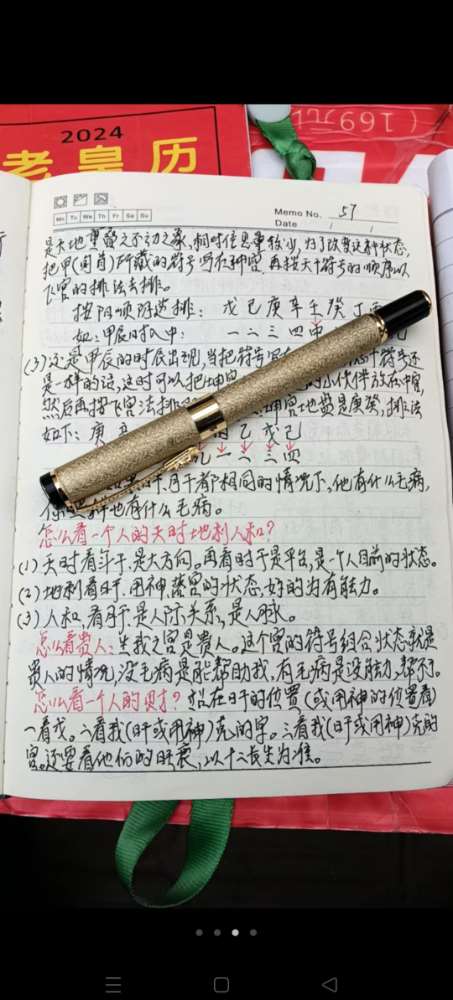 2024
老皇历
1691
Mo Tu We Th Fr Sa Su
Memo No. 57
Date / /
是天地重叠之不动之象,相对信息量较少,为了改变这种状态,
把甲(旬首)所藏的符号写在神宫,再按天干符号的顺序以
飞宫的排法去排。
按阴顺阳逆排:戊己庚辛壬癸丁
如:甲辰时入中:一二三四中
(3)还是甲辰的时辰出现,当把符号写 符号还
是一样的话,这时可以把 的小伙伴放在中宫,
然后再按飞宫法排 地盘是庚癸,排法
如下:庚 己戊己
一三四
月干都相同的情况下,他有什么毛病,
你 也有什么毛病。
怎么看一个人的天时地利人和?
(1)天时看年干,是大方向。再看时干是平台,是一个人目前的状态。
(2)地利看日干、用神、落宫的状态,好的为有能力。
(3)人和,看月干,是人际关系,是人脉。
怎么看贵人:生我之宫是贵人。这个宫的符号组合,状态就是
贵人的情况,没毛病是能帮助我,有毛病是没能力帮不了。
怎么看一个人的财才?站在日干的位置(或用神的位置看)
一看戊。二看我(日干或用神)克的字。三看我(日干或用神)克的
宫。还要看他们的旺衰,以十二长生为准。